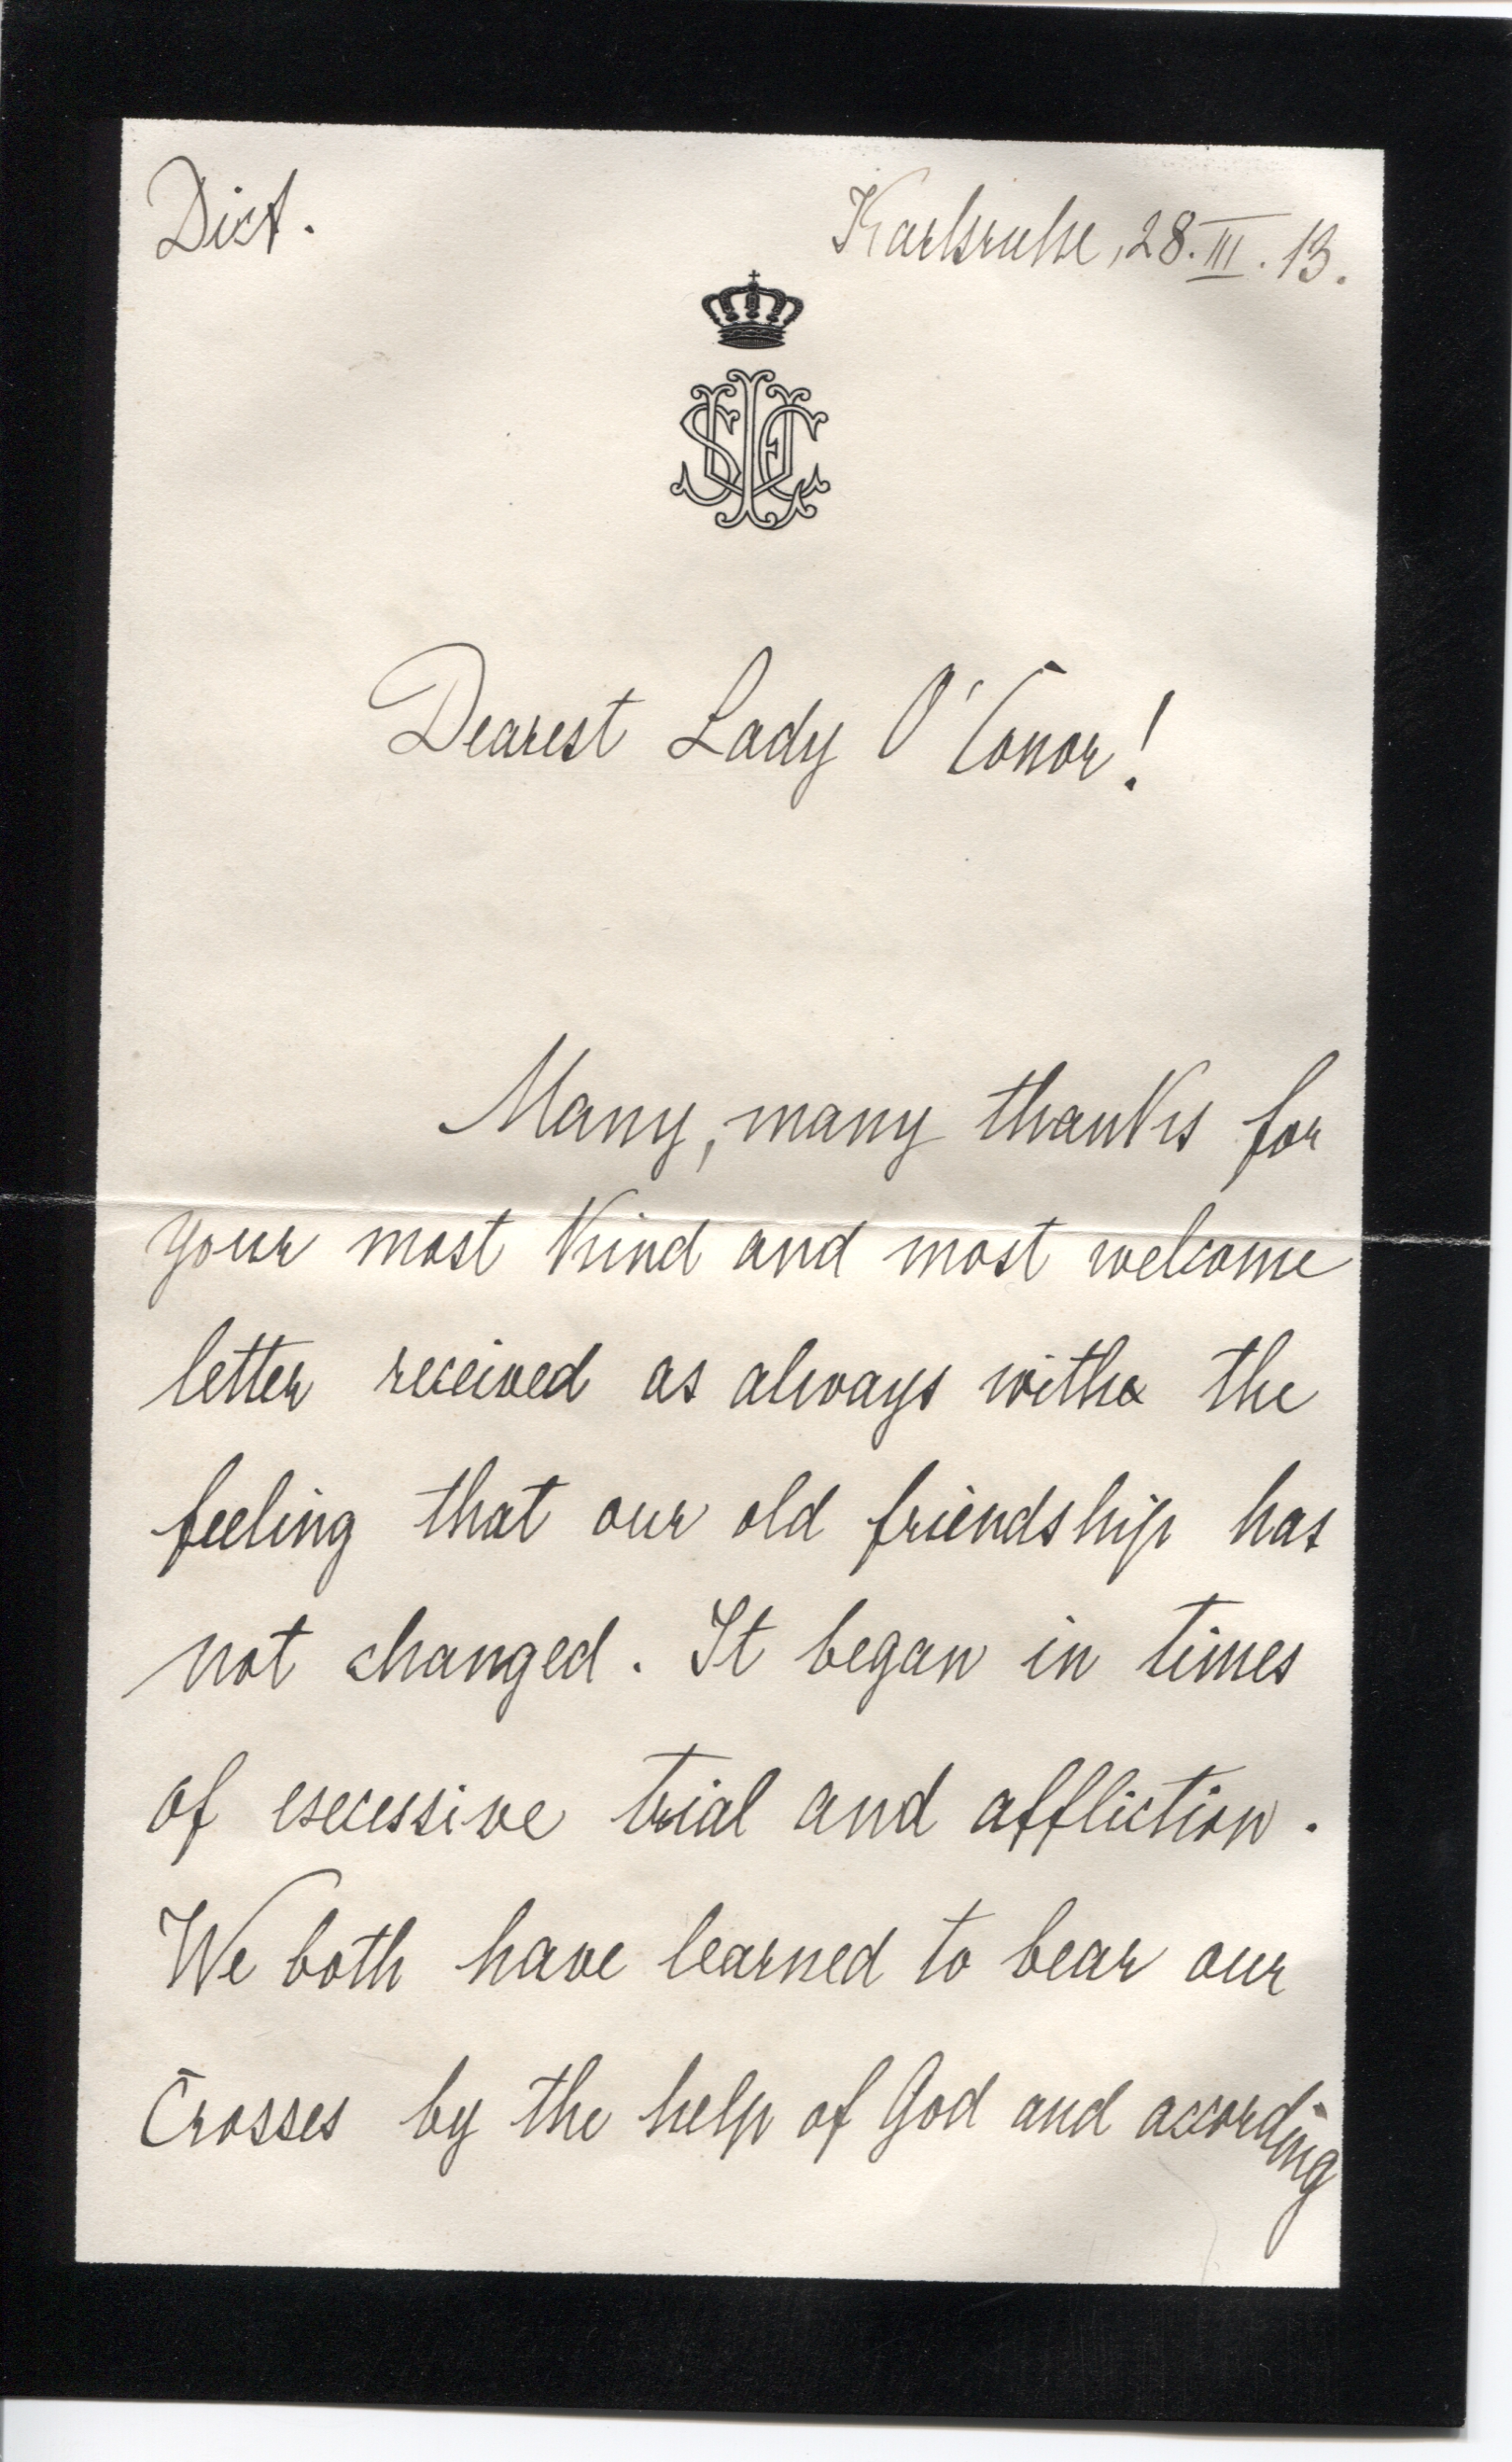 Dict.
Karlsruhe, 28.III.13.
Dearest Lady O'Conor!
Many, many thanks for
your most kind and most welcome
letter received as always with the
feeling that our old friendship has
not changed. It began in times
of excessive trial and affliction.
We both have learned to bear our
Crosses by the help of God and according